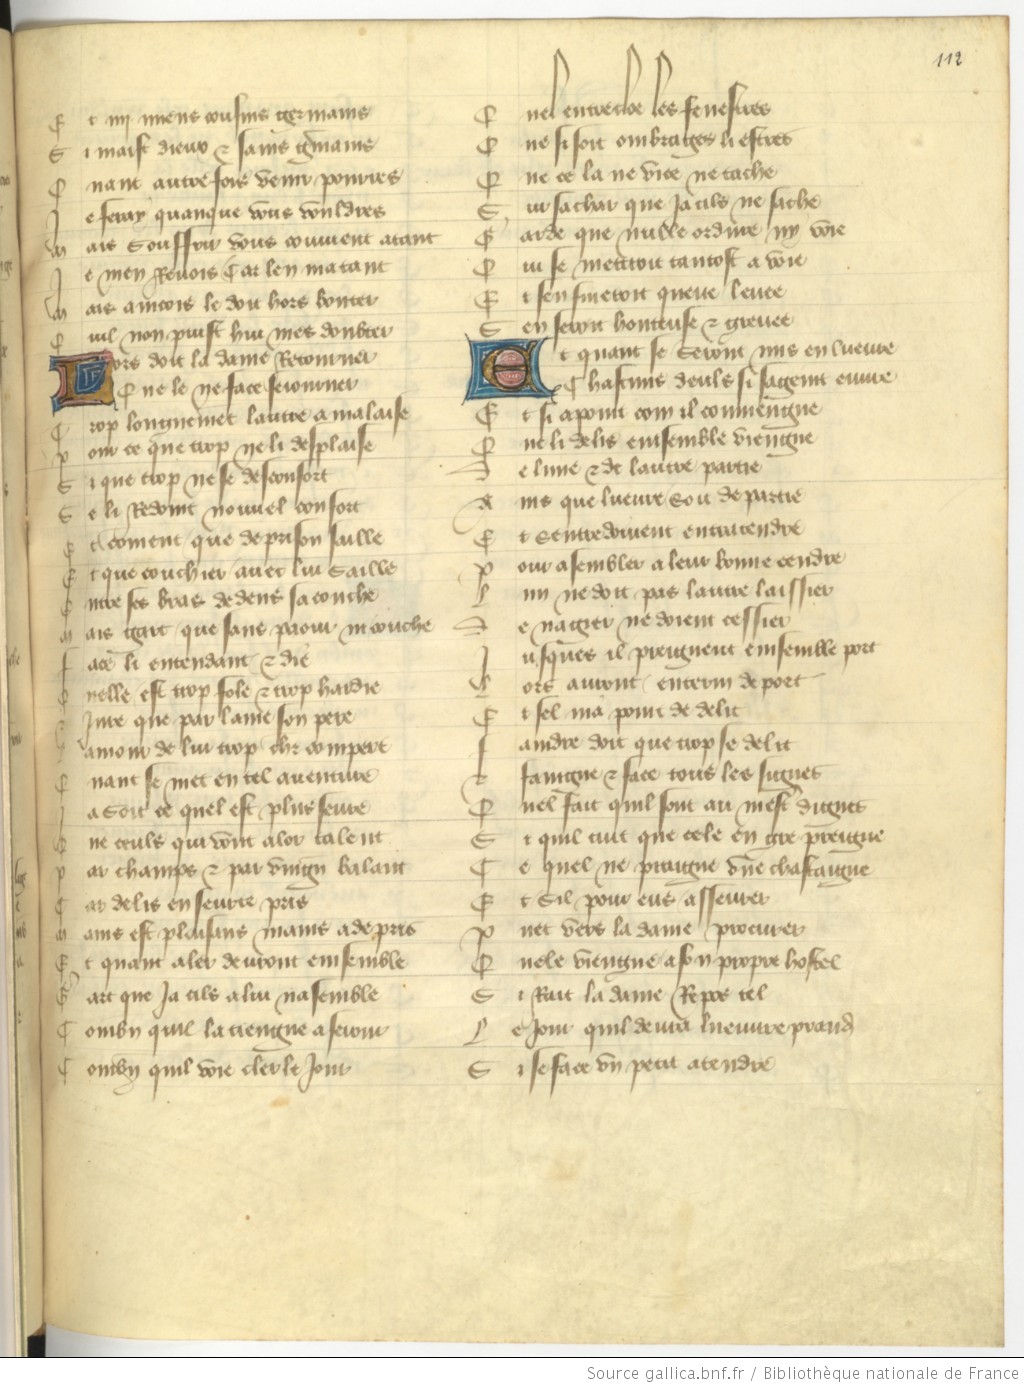 112
E t mi miens cousins germains
S i maist dieux ⁊ sains germains
Q uant autre fois venir pourres
J e feray quanque vous vouldres
M ais souffrir vous couvient atant
J e men revois Car len matant
M ais aincois le doit hors bouter
Q uil non puist hui mes doubter
L ors doit la dame Retourner
Q ue le ne face seiourner
T rop longuement lautre a malaise
P our ce que trop ne li desplaise
S i que trop ne se desconfort
S e li Redoint nouvel confort
E t coment que de prison saille
E t que couchier avec lui saille
E ntre ses bras dedens sa couche
M ais gart que sans paour ni couche
F ace li entendant ⁊ die
Q uelle est trop fole ⁊ trop hardie
E Jure que par lame son pere
L amour de lui trop chr compert
Q uant se met en tel aventure
J a soit ce quel est plus seure
Q ue ceulx qui vont a lor talent
P ar champs ⁊ par vingn balant
C ar delis en seurte pris
M ains est plaisans mains a de pris
E t quant aler devront ensemble
G art que Ja cils a lui nasemble
C ombn quil la tiengne a seiour
C ombn quil voie cler le Jour
Q uel entrecloe les fenestres
Q ue si soit ombrages li estres
Q ue ce la ne vice ne tache
S ur sa char que Ja cils ne sache
G arde que nulle ordure ny voie
Q ui se mettroit tantost a voie
E t sen fuieroit queue levee
S en seroit honteuse ⁊ grevee
E t quant se seront mis en luevre
C hascuns deuls si sagent euvre
E t si a point com il conviengne
Q ue li delis ensemble viengne
D e lune ⁊ de lautre partie
A ins que luevre soit departie
E t sentredoivent entratendre
P our asembler a leur bonne tendre
L un ne doit pas lautre laissier
D e nagier ne doient cessier
J usques il prengnent ensemble port
L ors auront enterin deport
E t sel ma point de delit
F aindre doit que trop se delit
E t faingne ⁊ face tous les signes
Q uel fait quil sont au mest dignes
S t quil cuit que cele en gre preigne
C e quel ne praigne une chastaigne
E t sil pour eus asseurer
P uet vers la dame procurer
Q uele viengne a son propre hostel
S i Rait la dame Repos tel
L e Jour quil devra luevure prand
S i se face un petit atendre
Source gallica.bnf.fr / Bibliothèque nationale de France